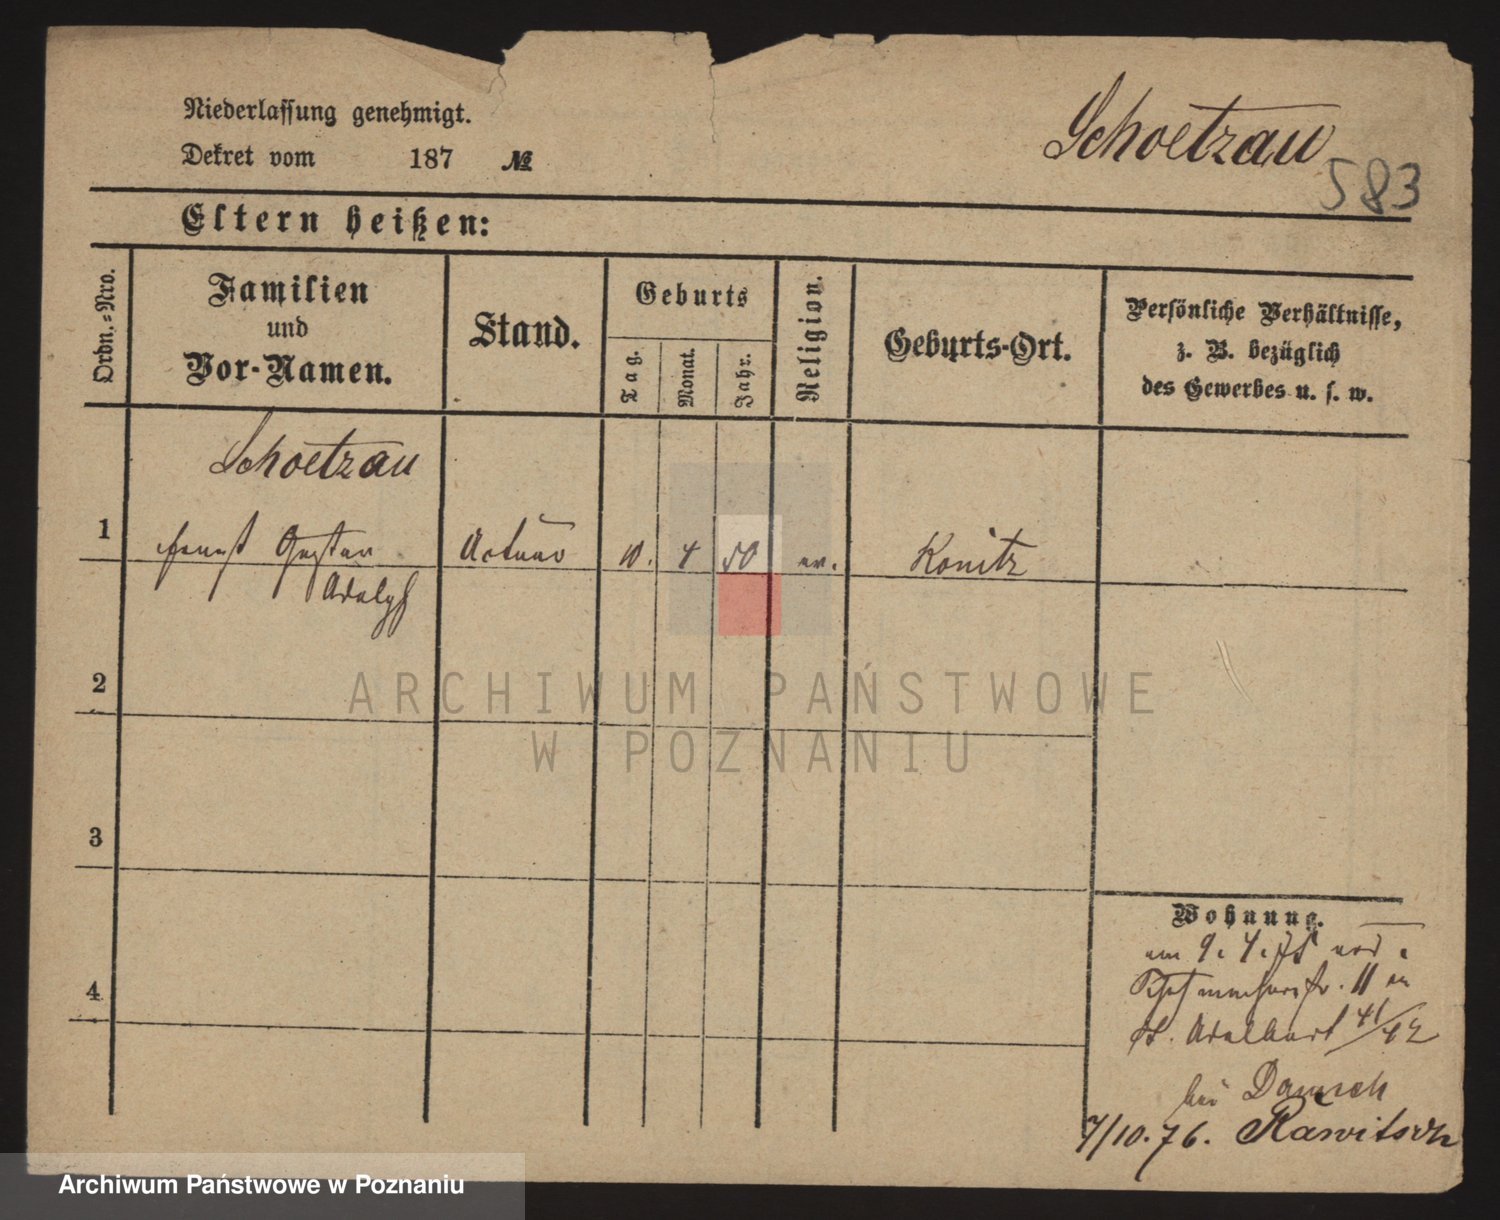 Niederlassung genehmigt.
Schoetzau
Dekret vom 187 №
583
Eltern heißen:
Ordn.-Nro.
Familien
und
Vor-Namen.
Stand.
Geburts
Tag.
Monat.
Jahr.
Religion.
Geburts-Ort.
Persönliche Verhältnisse,
z. B. bezüglich
des Gewerbes u. s. w.
Schoetzau
1 Ernst Gustav Actuar 10. 4 50 ev. Konitz
Adolph
2
ARCHIWUM PAŃSTWOWE
W POZNANIU
3
Wohnung.
am 9. 4. 75 von
11
4
St. Adalbert 41/42
bei Damsch
7/10. 76. Rawitsch
Archiwum Państwowe w Poznaniu